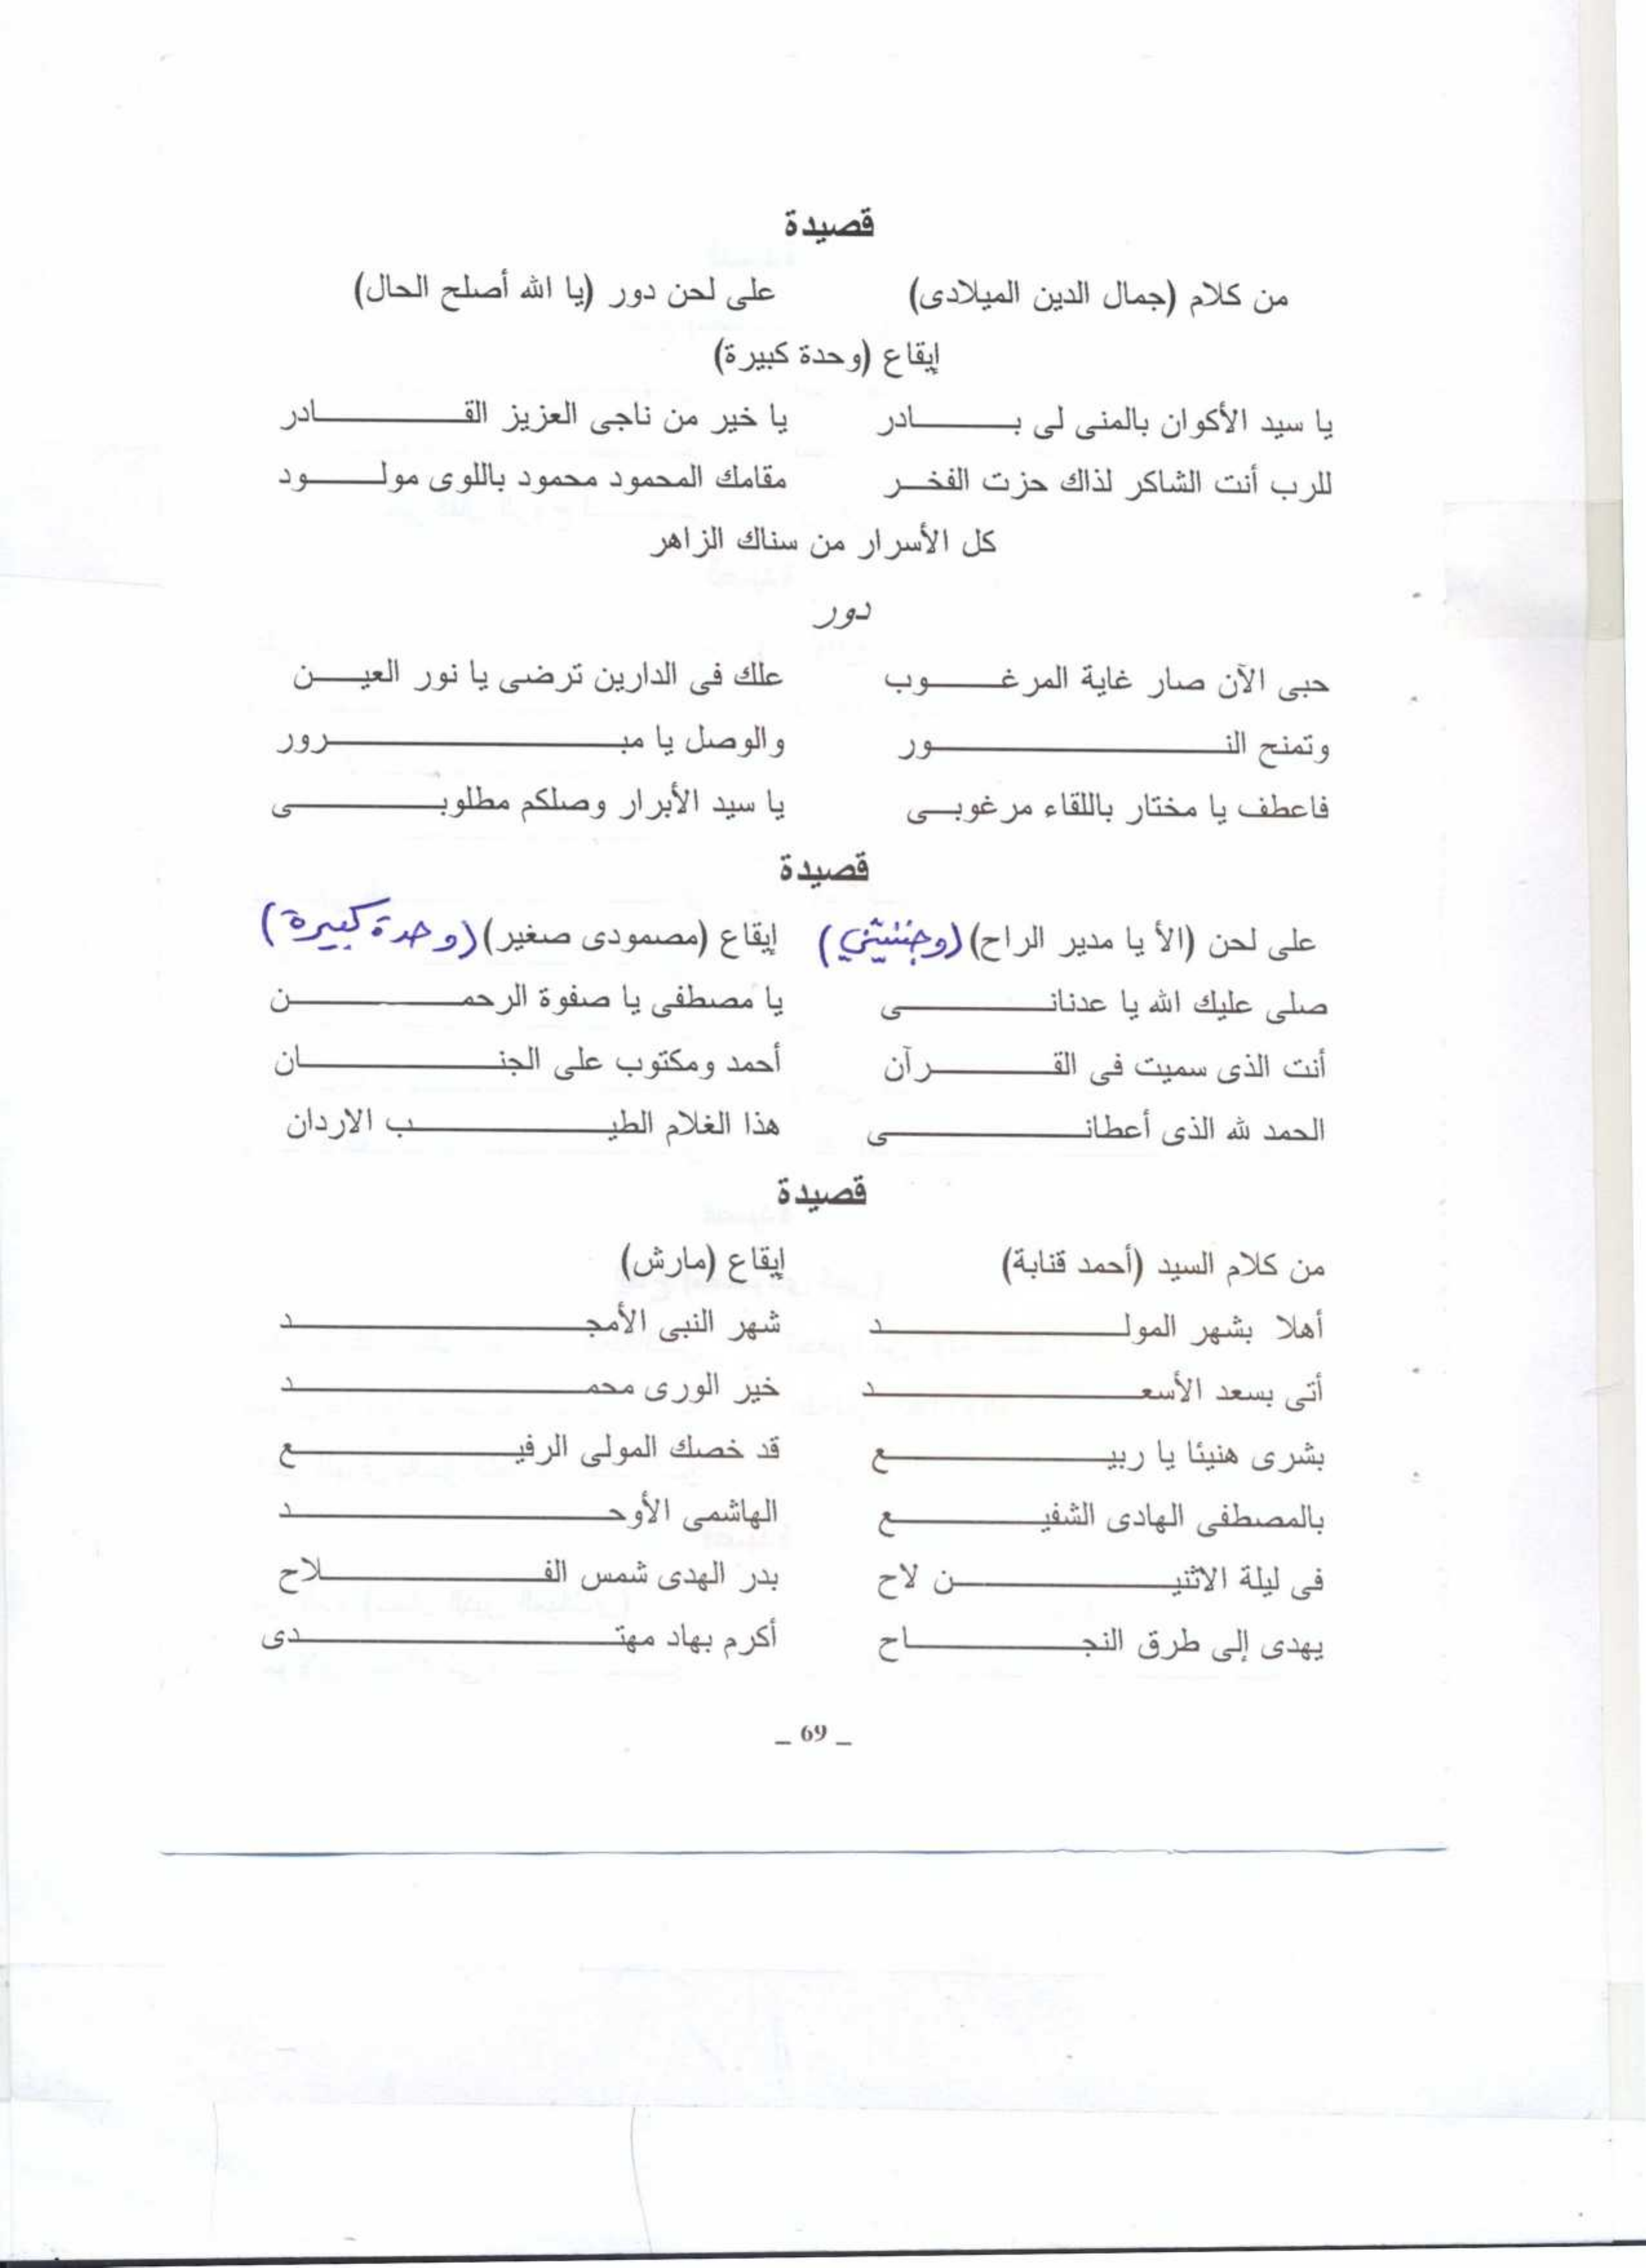 قصيدة
من كلام (جمال الدين الميلادى) على لحن دور (يا الله أصلح الحال)
إيقاع (وحدة كبيرة)
يا سيد الأكوان بالمنى لى بـــــادر يا خير من ناجى العزيز القـــــادر
للرب أنت الشاكر لذاك حزت الفخـــر مقامك المحمود محمود باللوى مولـــــود
كل الأسرار من سناك الزاهر
دور
حبى الآن صار غاية المرغـــــوب علك فى الدارين ترضى يا نور العيـــن
وتمنح النـــــور والوصل يا مبـــــرور
فاعطف يا مختار باللقاء مرغوبـــى يا سيد الأبرار وصلكم مطلوبـــــى
قصيدة
على لحن (الأ يا مدير الراح) (وجنتي) إيقاع (مصمودى صغير) (وحدة كبيرة)
صلى عليك الله يا عدنانـــــى يا مصطفى يا صفوة الرحمـــــن
أنت الذى سميت فى القـــــرآن أحمد ومكتوب على الجنـــــان
الحمد لله الذى أعطانـــــى هذا الغلام الطيـــــب الاردان
قصيدة
من كلام السيد (أحمد قنابة) إيقاع (مارش)
أهلا بشهر المولـــــد شهر النبى الأمجـــــد
أتى بسعد الأسعـــــد خير الورى محمـــــد
بشرى هنيئا يا ربيـــــع قد خصك المولى الرفيـــــع
بالمصطفى الهادى الشفيـــــع الهاشمى الأوحـــــد
فى ليلة الاثنيـــــن لاح بدر الهدى شمس الفـــــلاح
يهدى إلى طرق النجـــــاح أكرم بهاد مهتـــــدى
_ 69 _